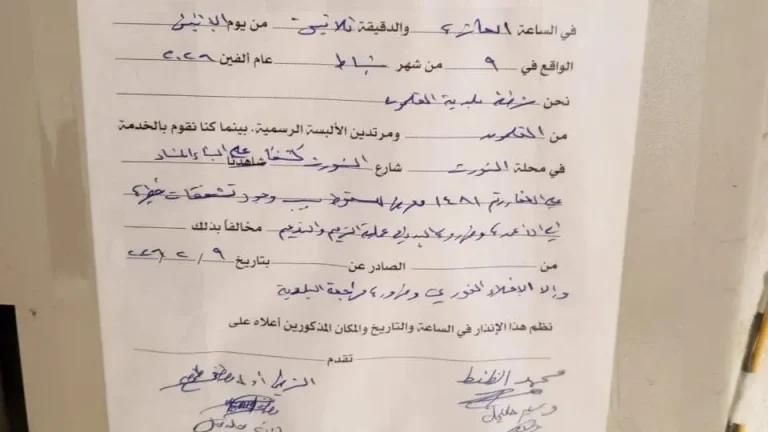 في الساعة العاشرة والدقيقة ثلاثين من يوم الاثنين
الواقع في ٩ من شهر شباط عام ألفين ٢٠٢٦
نحن شرطة بلدية القلمون
من القلمون ومرتدين الألبسة الرسمية، بينما كنا نقوم بالخدمة
في محلة شارع كشفنا شاهدنا على البناء المشاد
على العقار رقم ١٤٨١ معرض للسقوط بسبب وجود تشققات خطيرة
في الأعمدة وضرورة عملية الترميم والتدعيم مخالفاً بذلك
من الصادر عن بتاريخ ٩/٢/٢٠٢٦
وإلا الإخلاء الفوري وضرورة مراجعة البلدية
نظم هذا الإنذار في الساعة والتاريخ والمكان المذكورين أعلاه على
تقدم
محمد الظنط